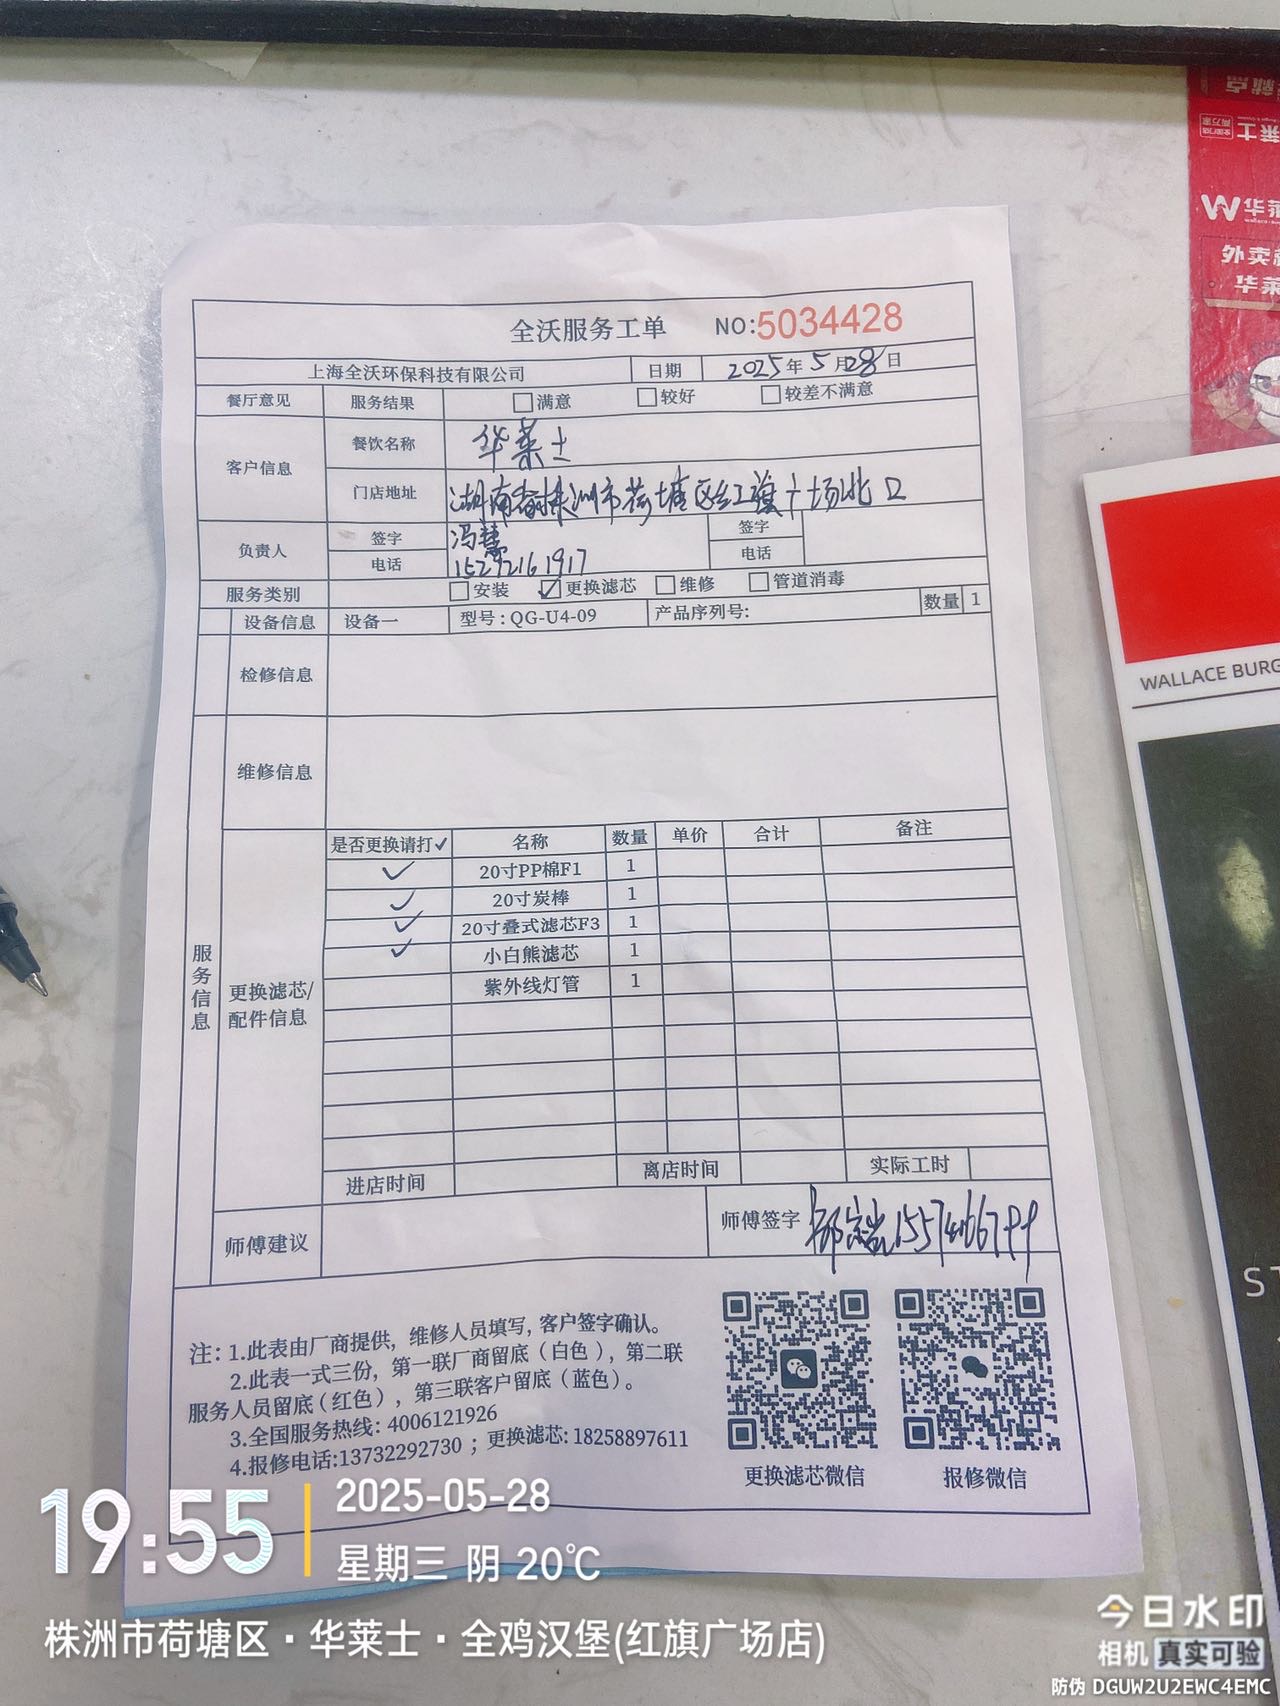 全沃服务工单 NO:5034428
上海全沃环保科技有限公司 日期 2025年5月28日
餐厅意见 服务结果 □满意 □较好 □较差不满意
客户信息 餐饮名称 华莱士
门店地址 湖南省株洲市荷塘区红旗广场北口
负责人 签字 冯慧 签字
电话 15292161917 电话
服务类别 □安装 ☑更换滤芯 □维修 □管道消毒
设备信息 设备一 型号:QG-U4-09 产品序列号: 数量 1
检修信息
维修信息
服务信息
更换滤芯/
配件信息
是否更换请打✓ 名称 数量 单价 合计 备注
✓ 20寸PP棉F1 1
✓ 20寸炭棒 1
✓ 20寸叠式滤芯F3 1
✓ 小白熊滤芯 1
紫外线灯管 1
进店时间 离店时间 实际工时
师傅建议 师傅签字
注:1.此表由厂商提供,维修人员填写,客户签字确认。
2.此表一式三份,第一联厂商留底(白色),第二联
服务人员留底(红色),第三联客户留底(蓝色)。
3.全国服务热线:4006121926
4.报修电话:13732292730;更换滤芯:18258897611
更换滤芯微信 报修微信
W华莱
外卖
华莱
WALLACE BURG
ST
19:55
2025-05-28
星期三 阴 20℃
株洲市荷塘区·华莱士·全鸡汉堡(红旗广场店)
今日水印
相机 真实可验
防伪 DGUW2U2EWC4EMC